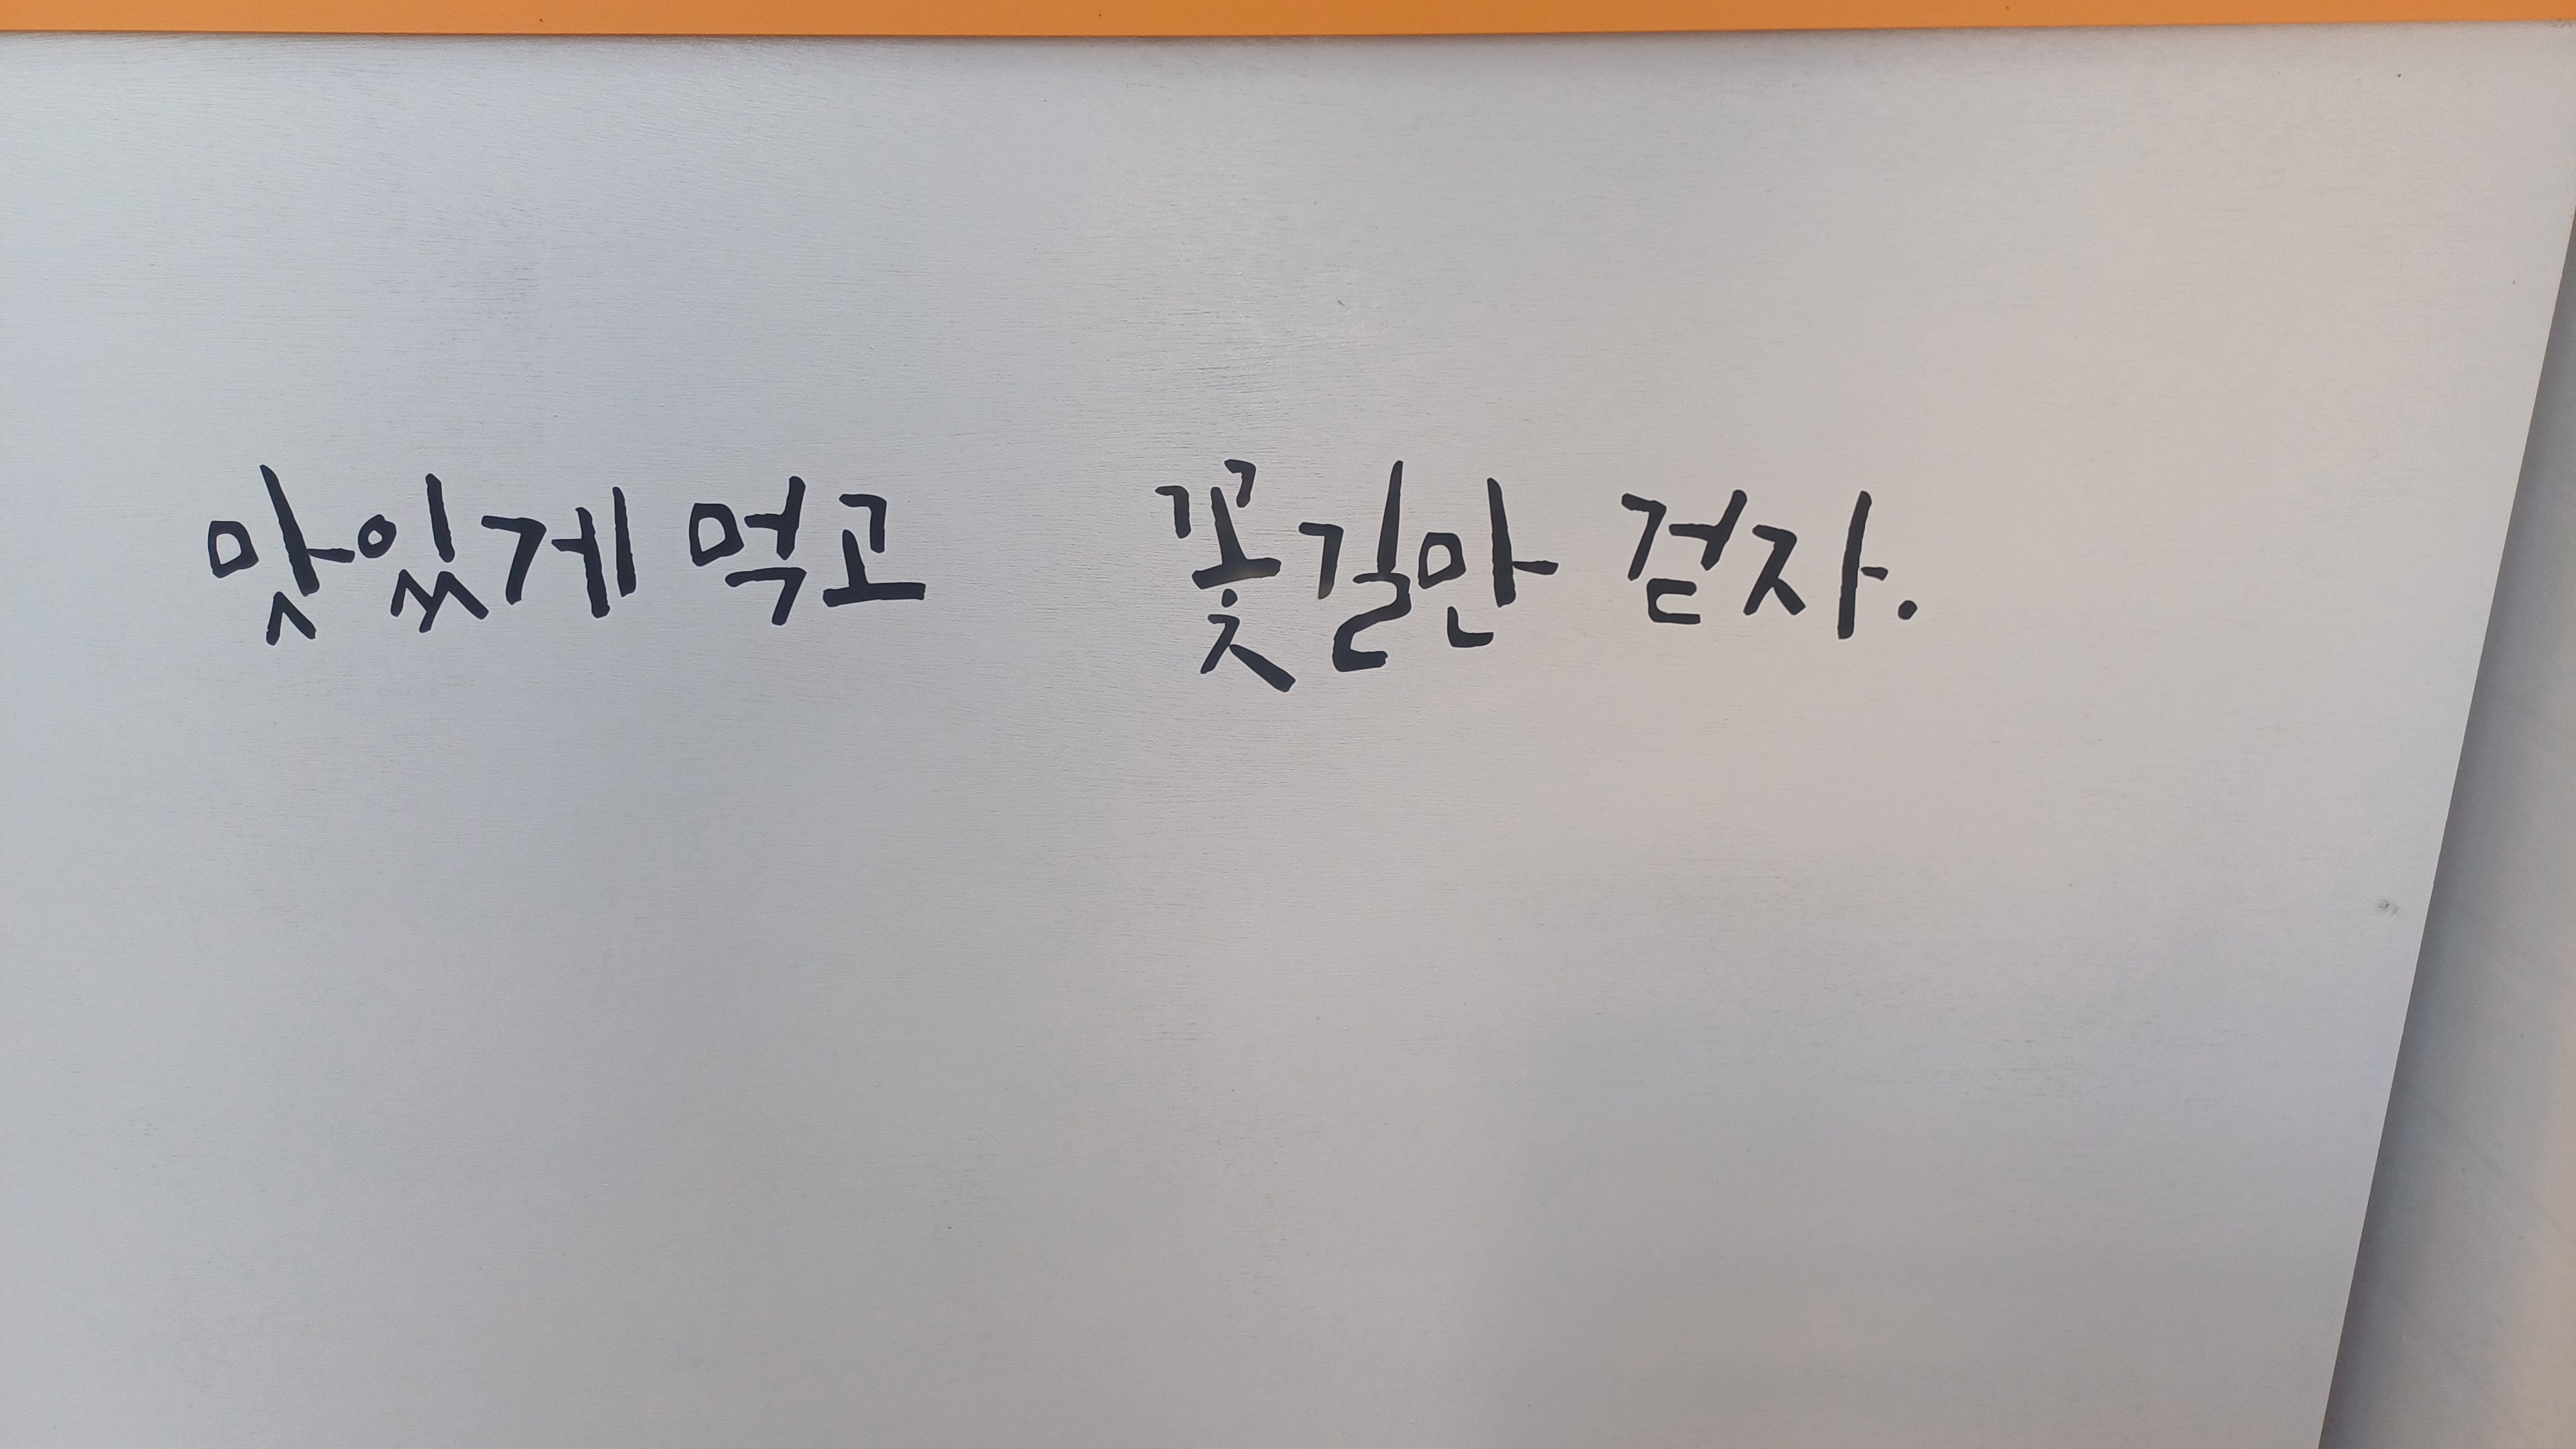 맛있게 먹고 꽃길만 걷자.